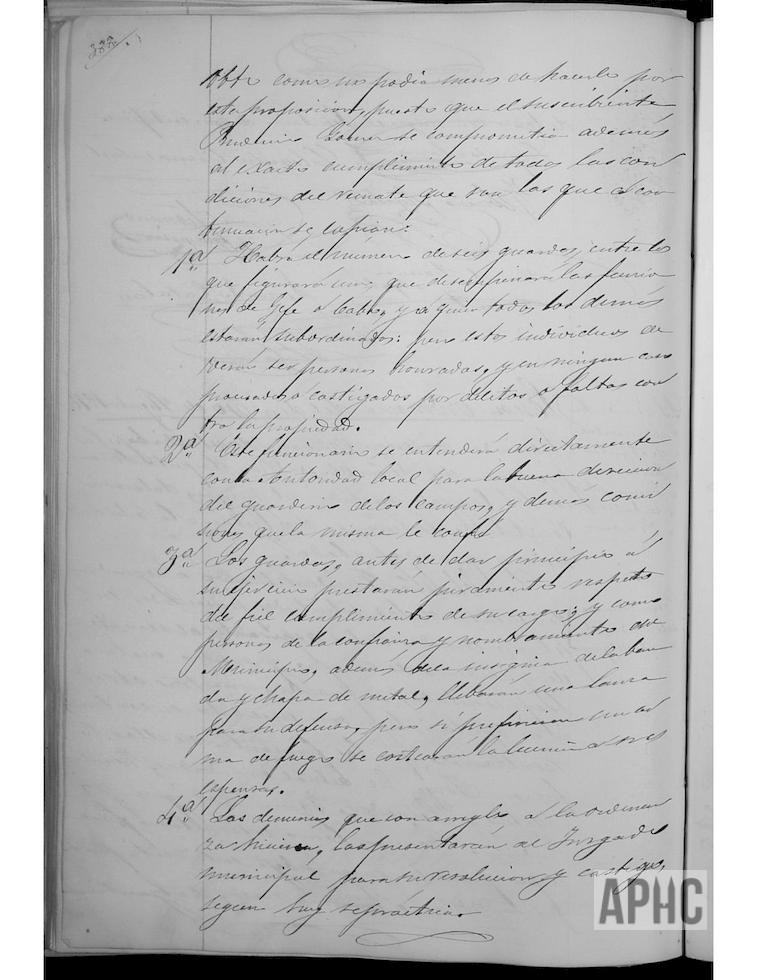 como no podia menos de hacerlo por
esta proposicion, puesto que el suscribiente
Gomez se comprometia ademas
al exacto cumplimiento de todas las con
diciones del remate que son las que á con
tinuacion se copian:
1ª Habrá el número de seis guardas, entre los
que figurará uno, que desempeñará las funcio
nes de Gefe ó Cabo, y á quien todos los demas
estarán subordinados: pero estos individuos de
verán ser personas honradas, y en ningun caso
procesados ó castigados por delitos o faltas con
tra la propiedad.
2ª Este funcionario se entenderá directamente
con la Autoridad local para la buena direccion
del guarderio de los campos, y demas comi
siones que la misma le confie
3ª Los guardas, antes de dar principio á
su ejercicio prestarán juramento respeto
del fiel cumplimiento de su cargo; y como
personas de la confianza y nombramiento del
Municipio, ademas de la insignia de la ban
da y chapa de metal, llebarán una lanza
para su defensa, pero si prefiriesen un ar
ma de fuego se costearan la licencia á sus
espensas.
4ª Las denuncias que con arreglo á la ordenan
za hicieren, las presentarán al Juzgado
municipal para su resolucion y castigo,
segun hoy se practica.
APHC